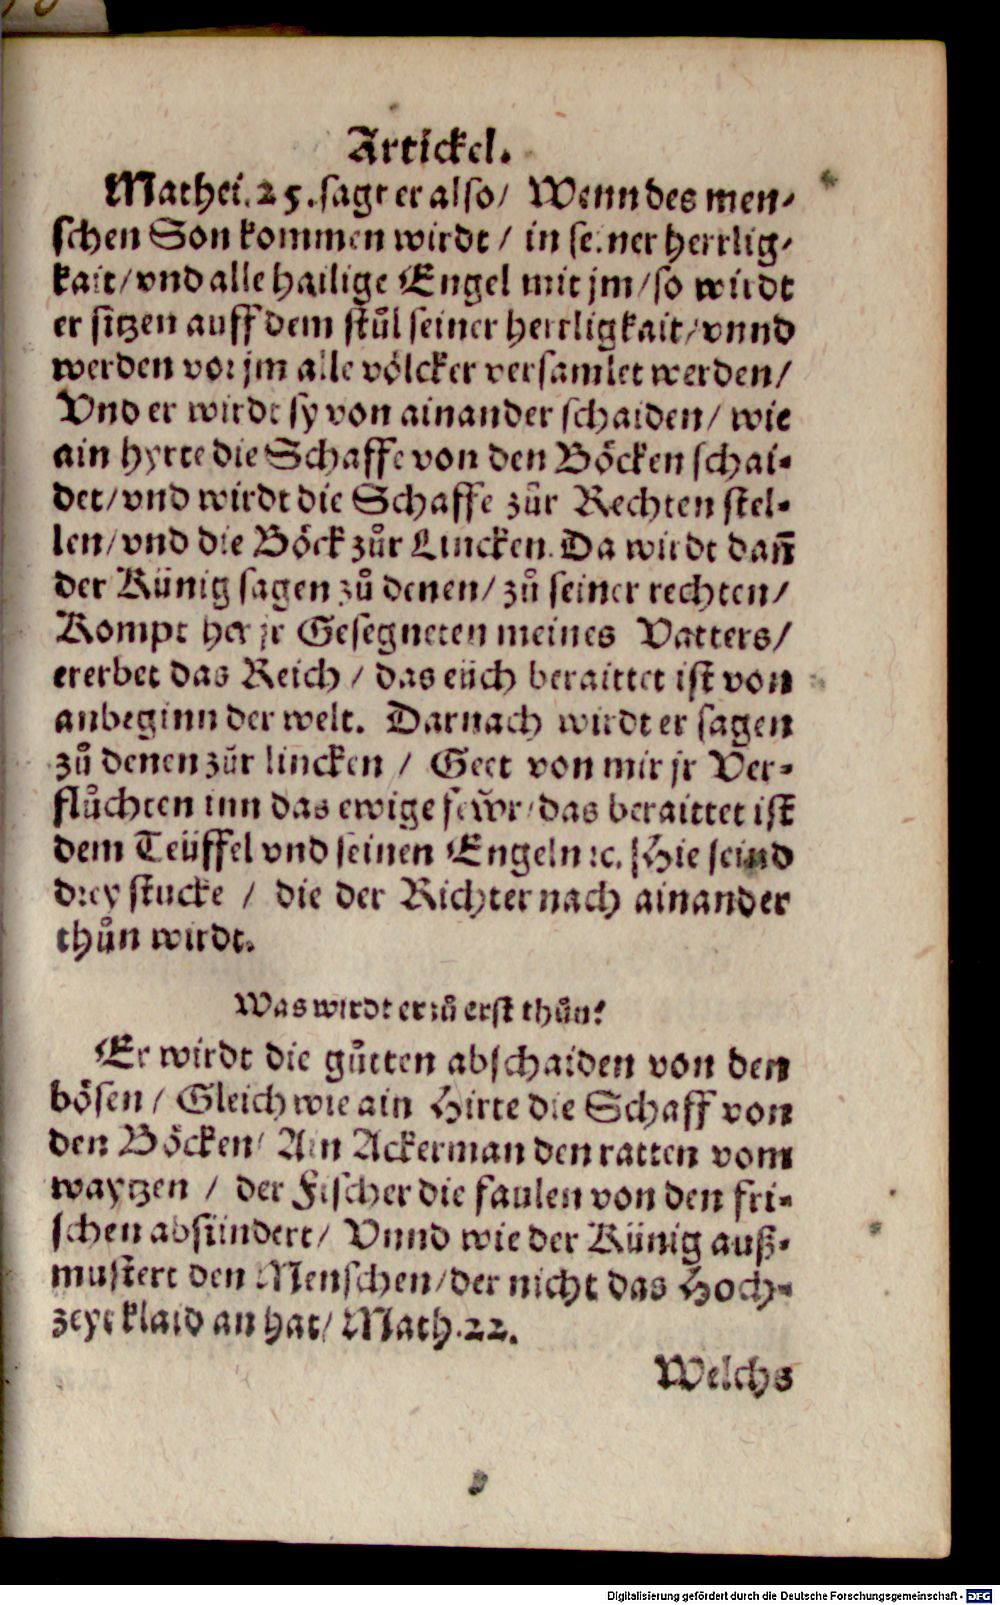 Artickel.
Mathei. 25. sagt er also/ Wenn des men-
schen Son kommen wirdt / in seiner herrlig-
kait/ vnd alle hailige Engel mit jm/ so wirdt
er sitzen auff dem stůl seiner herrligkait/ vnnd
werden vor jm alle völcker versamlet werden/
Vnd er wirdt sy von ainander schaiden/ wie
ain hyrte die Schaffe von den Böcken schai-
det/ vnd wirdt die Schaffe zůr Rechten stel-
len/ vnd die Böck zůr Lincken. Da wirdt dañ
der Künig sagen zů denen/ zů seiner rechten/
Kompt her jr Gesegneten meines Vatters/
ererbet das Reich / das eüch beraittet ist von
anbeginn der welt. Darnach wirdt er sagen
zů denen zůr lincken / Geet von mir jr Ver-
flůchten inn das ewige fewr/ das beraittet ist
dem Teüffel vnd seinen Engeln ꝛc. Hie seind
drey stucke / die der Richter nach ainander
thůn wirdt.
Was wirdt er zů erst thůn?
Er wirdt die gůtten abschaiden von den
bösen/ Gleich wie ain Hirte die Schaff von
den Böcken/ Ain Ackerman den ratten vom
waytzen / der Fischer die faulen von den fri-
schen absündert/ Vnnd wie der Künig auß-
mustert den Menschen/ der nicht das Hoch-
zeyt klaid an hat/ Math. 22.
Welchs
Digitalisierung gefördert durch die Deutsche Forschungsgemeinschaft - DFG